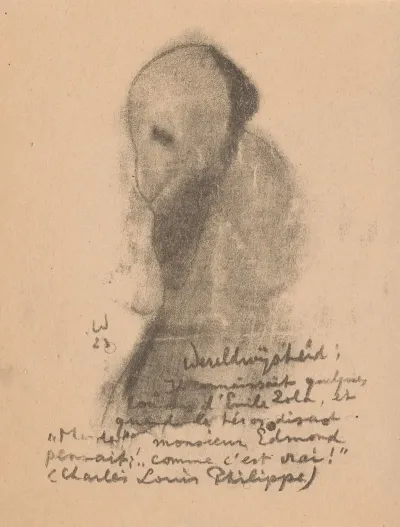 W
23
Wereldwijsheid:
connaissait quelques
d'Emile Zola, et
quand le héros disait
„Merde" monsieur Edmond
pensait: „comme c'est vrai!"
(Charles Louis Philippe)